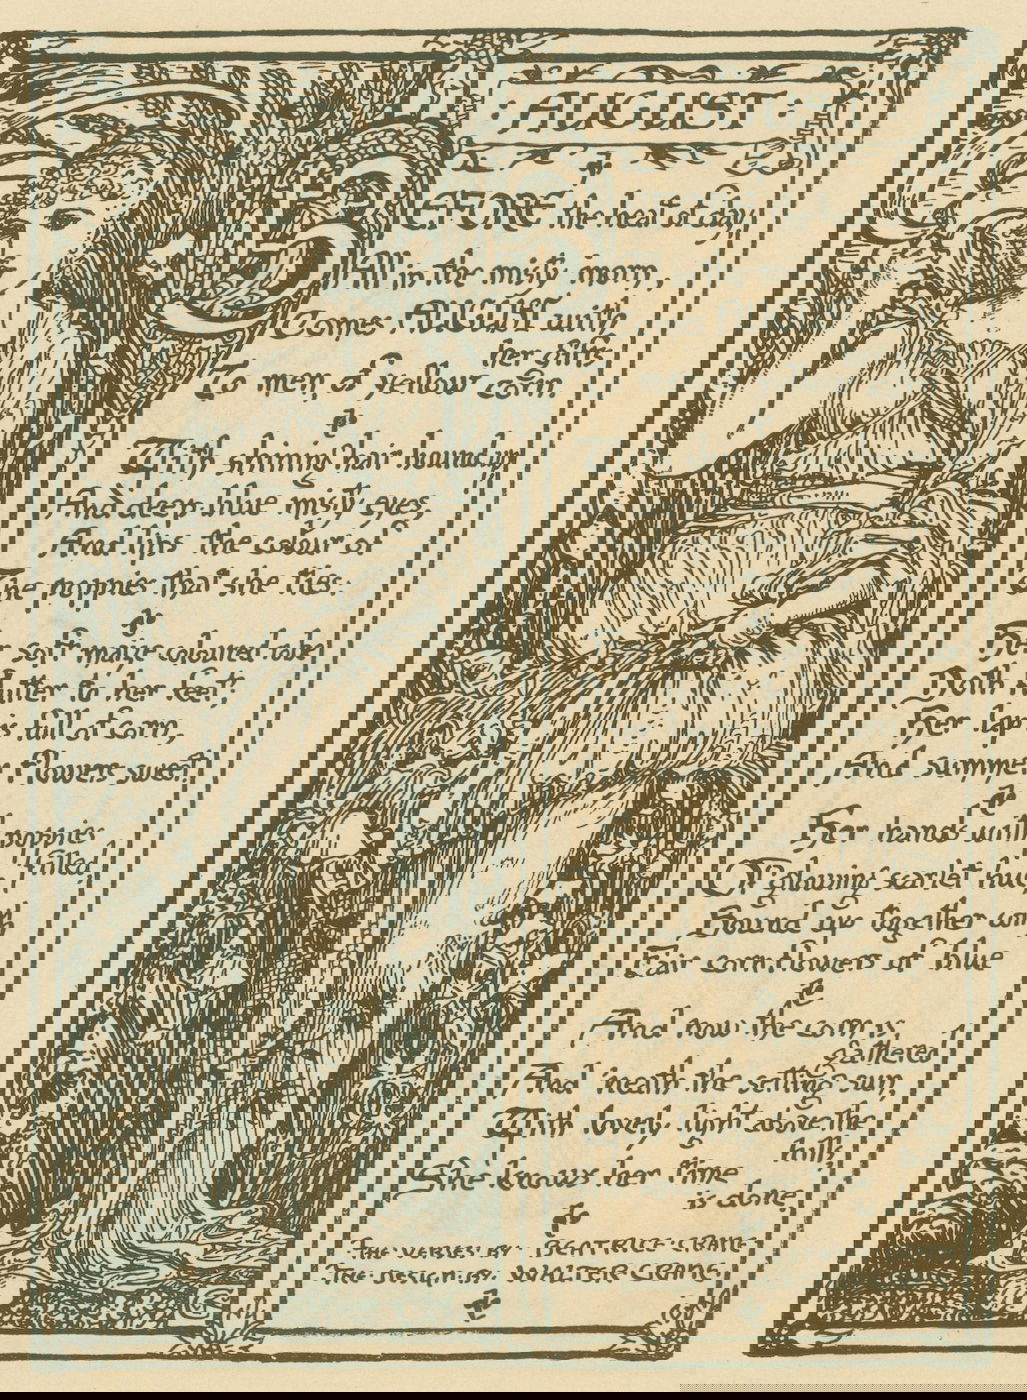 · AUGUST ·
BEFORE the heat of day,
When in the misty morn,
Comes AUGUST with
her gifts
To men of yellow corn.
With shining hair bound up
And deep blue misty eyes,
And lips the colour of
The poppies that she ties.
Her soft maize coloured robe
Doth flutter to her feet;
Her lap is full of corn,
And summer flowers sweet.
Her hands with poppies
filled,
Of glowing scarlet hue
Bound up together with
Fair cornflowers of blue
And now the corn is
gathered
And 'neath the setting sun,
With lovely light above the
hills,
She knows her time
is done.
THE VERSES BY BEATRICE CRANE
THE DESIGN BY WALTER CRANE.